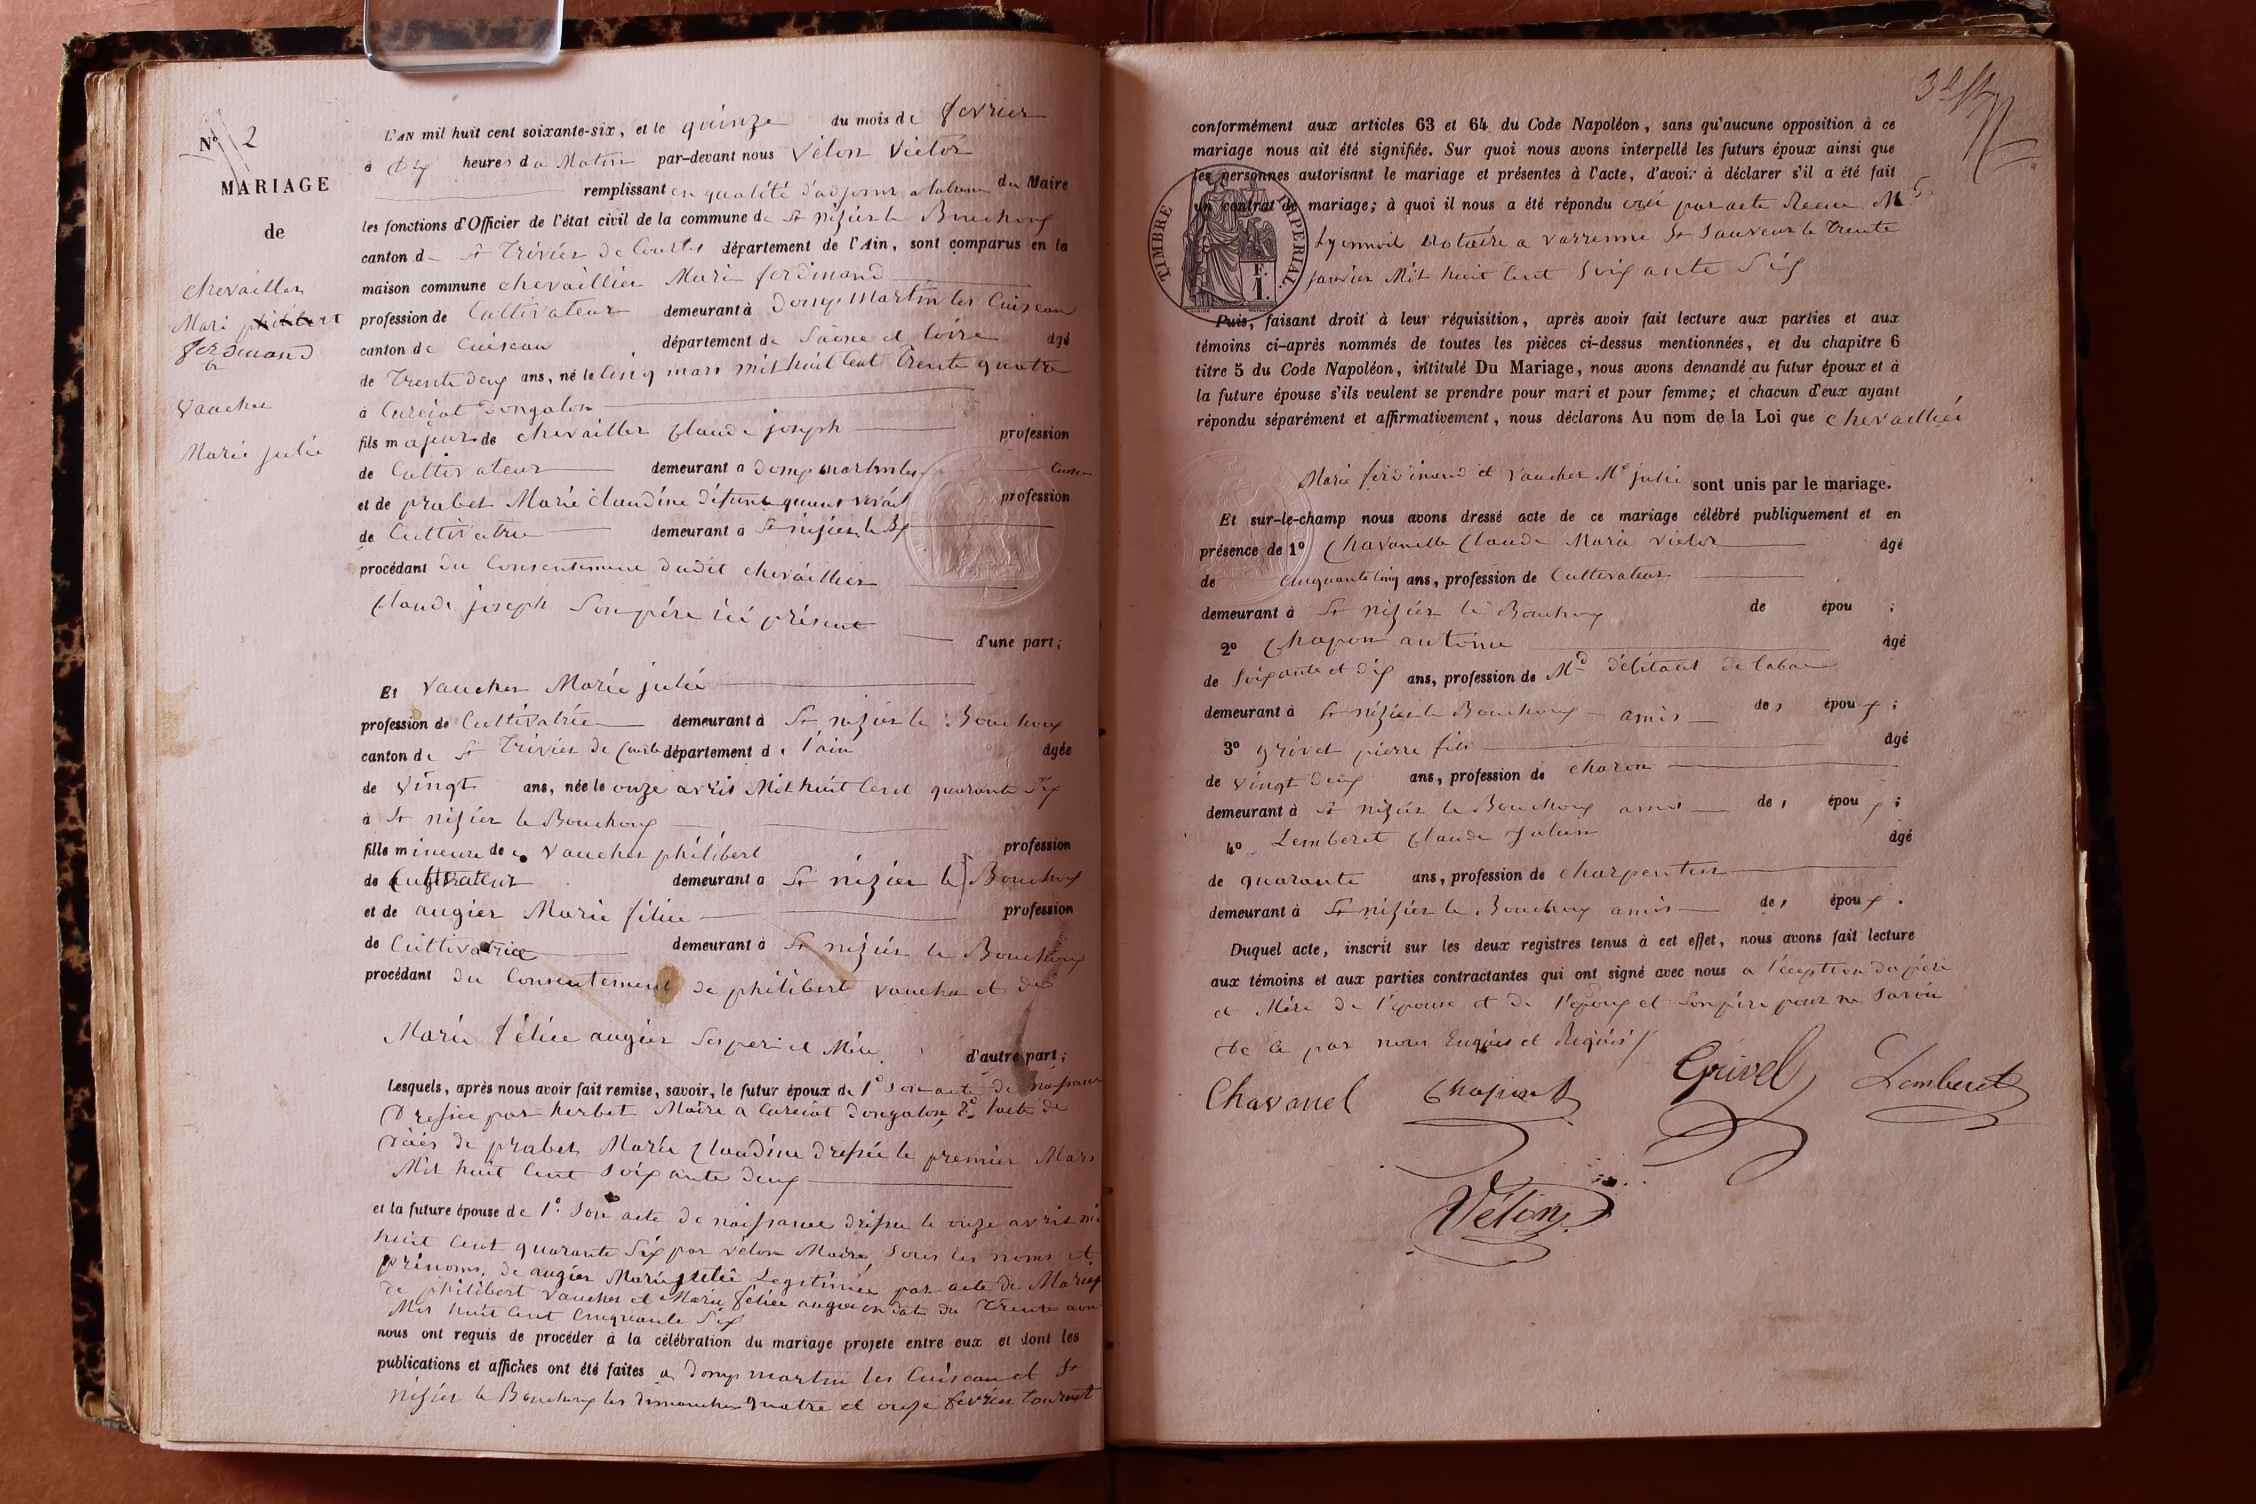 N° 2
MARIAGE
de
chevailler
Mari philibert
ferdinand
&
Vaucher
Marie julie
L'AN mil huit cent soixante-six, et le quinze du mois de fevrier
à dix heures du Matin par-devant nous Vélon Victor
remplissant en qualité d'adjoint du Maire
les fonctions d'Officier de l'état civil de la commune de St nizier le Bouchoux
canton de St Trivier de Courtes département de l'Ain, sont comparus en la
maison commune chevaillier Marie ferdinand
profession de Cultivateur demeurant à Dompmartin les Cuiseaux
canton de Cuiseau département de Saone et loire âgé
de Trente deux ans, né le cinq mars mil huit cent trente quatre
à Curciat Dongalon
fils majeur de chevailler Claude joseph profession
de Cultivateur demeurant à Dompmartin les Cuiseau
et de prabel Marie Claudine défunte quand vivait profession
de Cultivatrice demeurant à St nizier le Bx
procédant du Consentement dudit chevaillier
Claude joseph Son père ici présent
d'une part;
Et Vaucher Marie julie
profession de Cultivatrice demeurant à St nizier le Bouchoux
canton de St Trivier de Courtes département de l'ain âgée
de vingt ans, née le onze avril Mil huit Cent quarante six
à St nizier le Bouchoux
fille mineure de Vaucher philibert profession
de Cultivateur demeurant à St nizier le Bouchoux
et de augier Marie félice profession
de Cultivatrice demeurant à St nizier le Bouchoux
procédant du Consentement de philibert Vaucher et de
Marie félice augier Ses pere et Mère
d'autre part;
Lesquels, après nous avoir fait remise, savoir, le futur époux de 1° Son acte de naissance
Dressée par herbet Maire a Curciat Dongalon, 2° l'acte de
décès de prabel Marie Claudine dressée le premier Mars
Mil huit Cent Soixante deux
et la future épouse de 1° Son acte de naissance dressée le onze avril mil
huit Cent quarante Six par Vélon Maire, Sous les noms et
prénoms de augier Marie julie Légitimée par acte de Mariage
de philibert Vaucher et Marie félice augier en date du Trente
Mil huit Cent Cinquante Six
nous ont requis de procéder à la célébration du mariage projeté entre eux et dont les
publications et affiches ont été faites à Dompmartin les Cuiseau et St
nizier le Bouchoux les dimanches quatre et onze fevrier Courant
conformément aux articles 63 et 64 du Code Napoléon, sans qu'aucune opposition à ce
mariage nous ait été signifiée. Sur quoi nous avons interpellé les futurs époux ainsi que
les personnes autorisant le mariage et présentes à l'acte, d'avoir à déclarer s'il a été fait
un contrat de mariage; à quoi il nous a été répondu oui par acte Recu Me
Lyonnais Notaire a Varenne St Sauveur le Trente
janvier Mil huit Cent Soixante Six
TIMBRE IMPERIAL
F.
1.
Puis, faisant droit à leur réquisition, après avoir fait lecture aux parties et aux
témoins ci-après nommés de toutes les pièces ci-dessus mentionnées, et du chapitre 6
titre 5 du Code Napoléon, intitulé Du Mariage, nous avons demandé au futur époux et à
la future épouse s'ils veulent se prendre pour mari et pour femme; et chacun d'eux ayant
répondu séparément et affirmativement, nous déclarons Au nom de la Loi que chevaillier
Marie ferdinand et Vaucher Me julie sont unis par le mariage.
Et sur-le-champ nous avons dressé acte de ce mariage célébré publiquement et en
présence de 1° Chavanelle Claude Marie victor âgé
de cinquante cinq ans, profession de Cultivateur
demeurant à St nizier le Bouchoux de épou ;
2° Chapon antoine âgé
de Soixante et dix ans, profession de Md débitant de tabac
demeurant à St nizier le Bouchoux amis des époux ;
3° grivel pierre fils âgé
de vingt deux ans, profession de charon
demeurant à St nizier le Bouchoux amis des époux ;
4° Lemberet Claude Julien âgé
de quarante ans, profession de charpentier
demeurant à St nizier le Bouchoux amis des époux .
Duquel acte, inscrit sur les deux registres tenus à cet effet, nous avons fait lecture
aux témoins et aux parties contractantes qui ont signé avec nous a l'exeption du père
et Mère de l'epouse et de l'époux et Son père pour ne Savoir
de ce par nous Enquis et Réquis
Chavanel Chapon Grivel Lemberet
Vélon